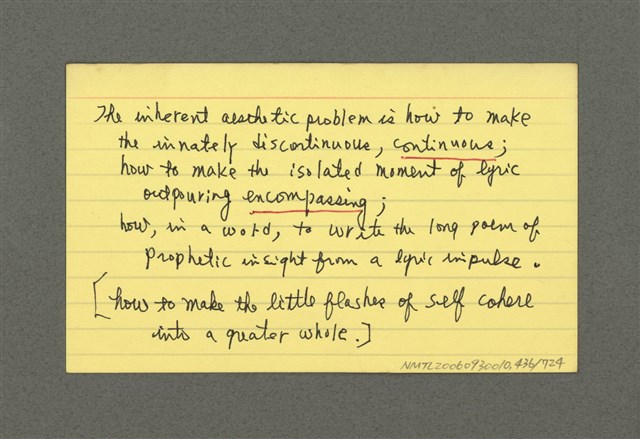 The inherent aesthetic problem is how to make
the innately discontinuous, continuous;
how to make the isolated moment of lyric
outpouring encompassing;
how, in a word, to write the long poem of
prophetic insight from a lyric impulse.
[how to make the little flashes of self cohere
into a greater whole.]
NMTL20060930010,436/724